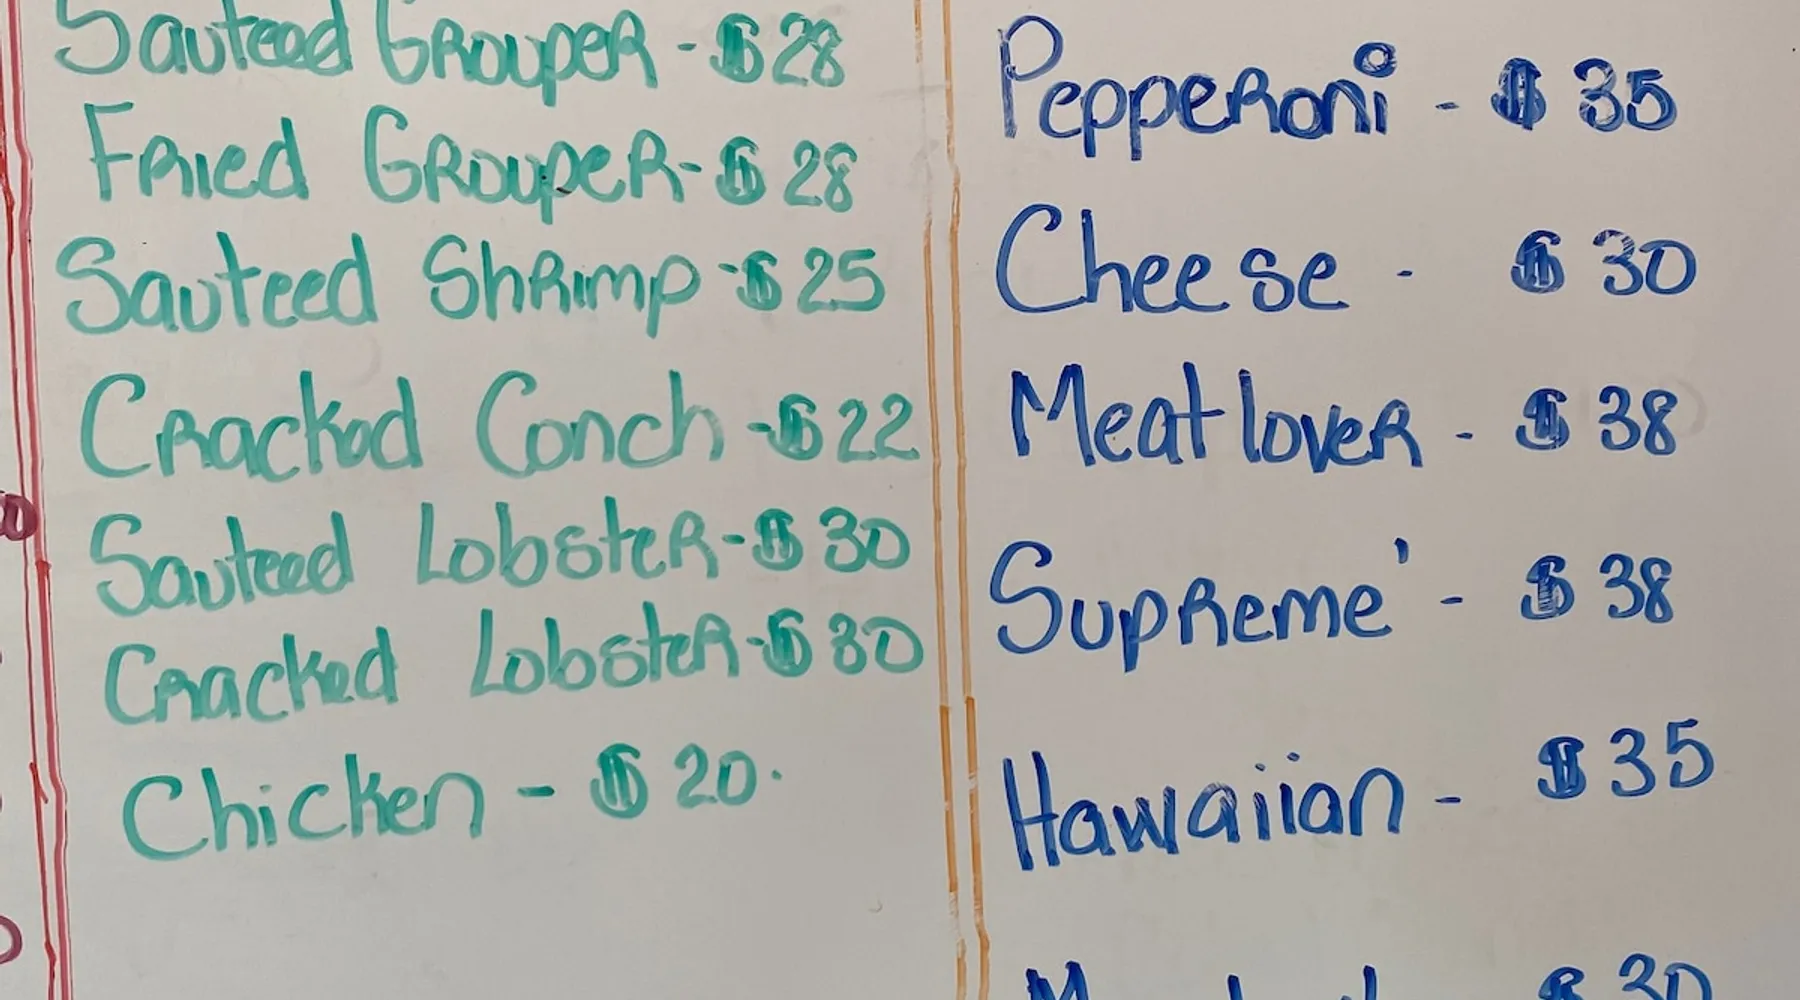 Sauteed Grouper - $28
Fried Grouper - $28
Sauteed Shrimp - $25
Cracked Conch - $22
Sauteed Lobster - $30
Cracked Lobster - $30
Chicken - $20.
Pepperoni - $35
Cheese - $30
Meat lover - $38
Supreme' - $38
Hawaiian - $35
$30